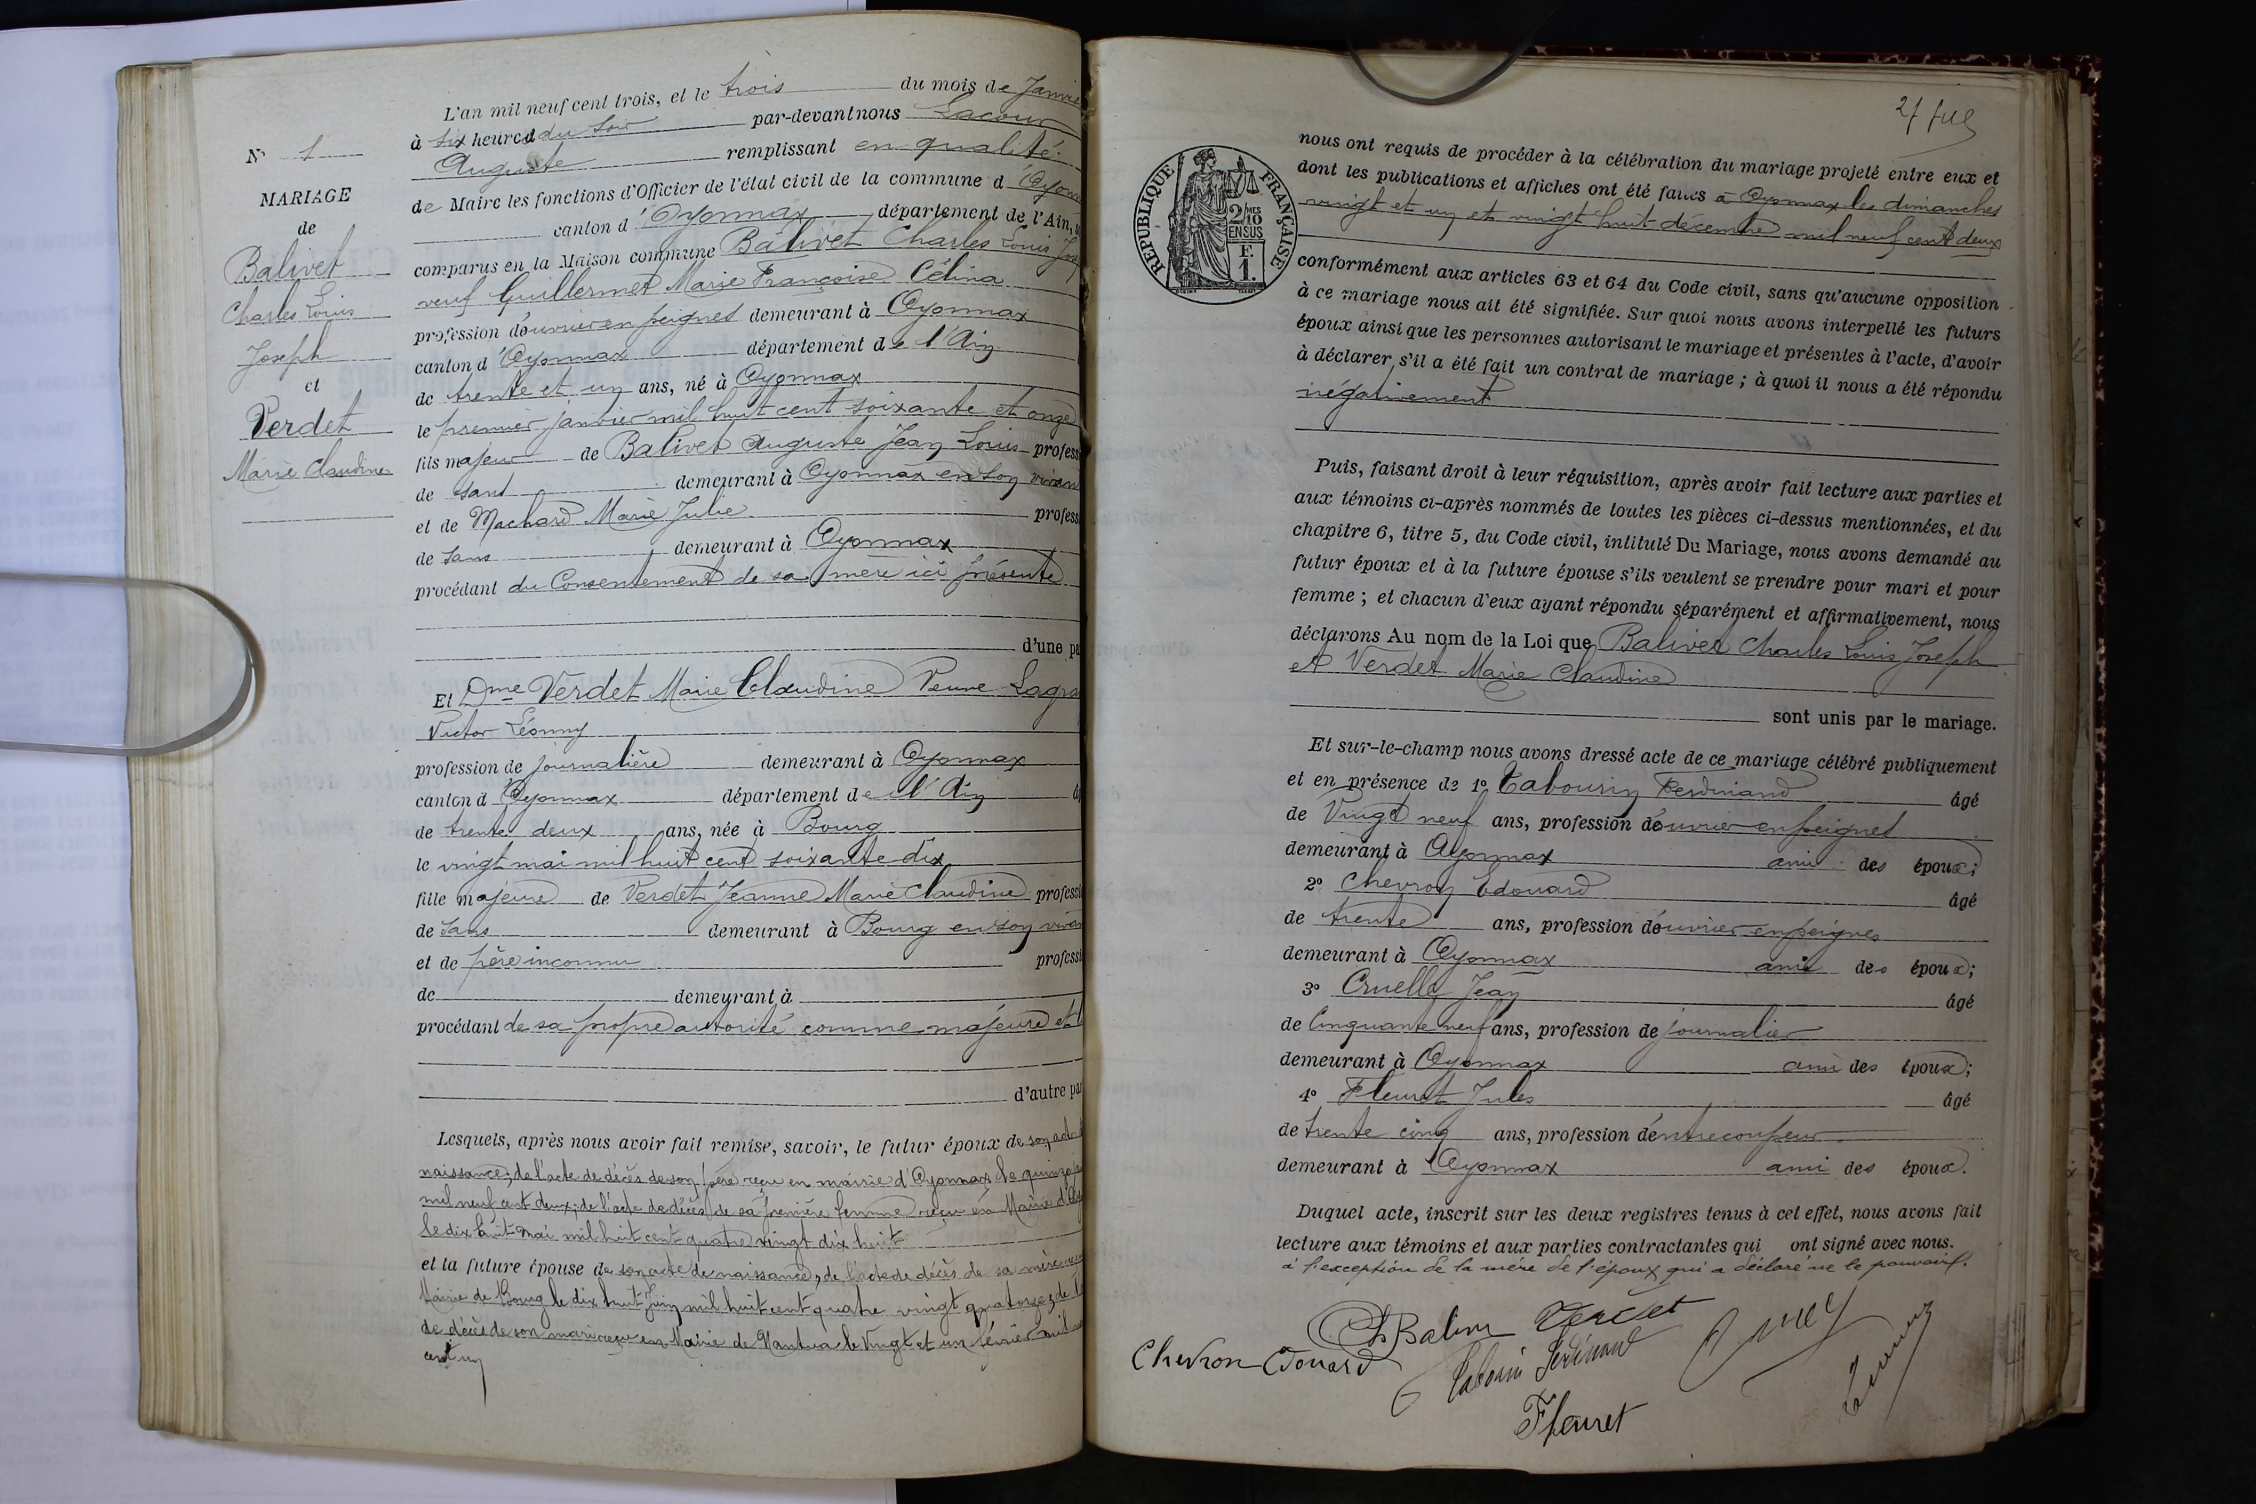 L'an mil neuf cent trois, et le trois du mois de Janvie
à six heures du soir par-devant nous Lacour
Auguste remplissant en qualité
de Maire les fonctions d'Officier de l'état civil de la commune d Oyonn
canton d'Oyonnax département de l'Ain,
comparus en la Maison commune Balivet Charles Louis Jos
veuf Guillermet Marie Françoise Célina
profession d'ouvrier en peignes demeurant à Oyonnax
canton d'Oyonnax département de l'Ain
de trente et un ans, né à Oyonnax
le premier janvier mil huit cent soixante et onze
fils majeur de Balivet Auguste Jean Louis profess
de sans demeurant à Oyonnax en son vivan
et de Machard Marie Julie profess
de sans demeurant à Oyonnax
procédant du Consentement de sa mère ici présente
d'une pa
Et Dme Verdet Marie Claudine Veuve Lagra
Victor Léonny
profession de journalière demeurant à Oyonnax
canton d Oyonnax département de l'Ain
de trente deux ans, née à Bourg
le vingt mai mil huit cent soixante dix
fille majeure de Verdet Jeanne Marie Claudine professi
de sans demeurant à Bourg en son viva
et de père inconnu professi
de demeurant à
procédant de sa propre autorité comme majeure et
d'autre par
Lesquels, après nous avoir fait remise, savoir, le futur époux de son acte
naissance, de l'acte de décès de son père reçu en mairie d'Oyonnax le quinze
mil neuf cent deux; de l'acte de décès de sa première femme reçu en Mairie
le dix huit mai mil huit cent quatre vingt dix huit
et la future épouse de son acte de naissance, de l'acte de décès de sa mère
Mairie de Bourg le dix huit Juin mil huit cent quatre vingt quatorze, de l
de décès de son mari reçu en Mairie de Nantua le Vingt et un février mil
cent un
N° 1
MARIAGE
de
Balivet
Charles Louis
Joseph
et
Verdet
Marie Claudine
REPUBLIQUE FRANÇAISE
2/10 MES
EN SUS
F.
1.
nous ont requis de procéder à la célébration du mariage projeté entre eux et
dont les publications et affiches ont été faites à Oyonnax les dimanches
vingt et un et vingt huit décembre mil neuf cent deux
conformément aux articles 63 et 64 du Code civil, sans qu'aucune opposition
à ce mariage nous ait été signifiée. Sur quoi nous avons interpellé les futurs
époux ainsi que les personnes autorisant le mariage et présentes à l'acte, d'avoir
à déclarer s'il a été fait un contrat de mariage; à quoi il nous a été répondu
négativement
Puis, faisant droit à leur réquisition, après avoir fait lecture aux parties et
aux témoins ci-après nommés de toutes les pièces ci-dessus mentionnées, et du
chapitre 6, titre 5, du Code civil, intitulé Du Mariage, nous avons demandé au
futur époux et à la future épouse s'ils veulent se prendre pour mari et pour
femme; et chacun d'eux ayant répondu séparément et affirmativement, nous
déclarons Au nom de la Loi que Balivet Charles Louis Joseph
et Verdet Marie Claudine
sont unis par le mariage.
Et sur-le-champ nous avons dressé acte de ce mariage célébré publiquement
et en présence de 1° Tabourin Ferdinand âgé
de Vingt neuf ans, profession d'ouvrier en peignes
demeurant à Oyonnax ami des époux;
2° Chevron Edouard âgé
de trente ans, profession d'ouvrier en peignes
demeurant à Oyonnax ami des époux;
3° Cruelle Jean âgé
de Cinquante neuf ans, profession de journalier
demeurant à Oyonnax ami des époux;
4° Fleuret Jules âgé
de trente cinq ans, profession d'entrecoupeur
demeurant à Oyonnax ami des époux.
Duquel acte, inscrit sur les deux registres tenus à cet effet, nous avons fait
lecture aux témoins et aux parties contractantes qui ont signé avec nous.
à l'exception de la mère de l'époux qui a déclaré ne le pouvoir.
Ch Balivet Verdet
Chevron Edouard
Tabourin Ferdinand
Fleuret